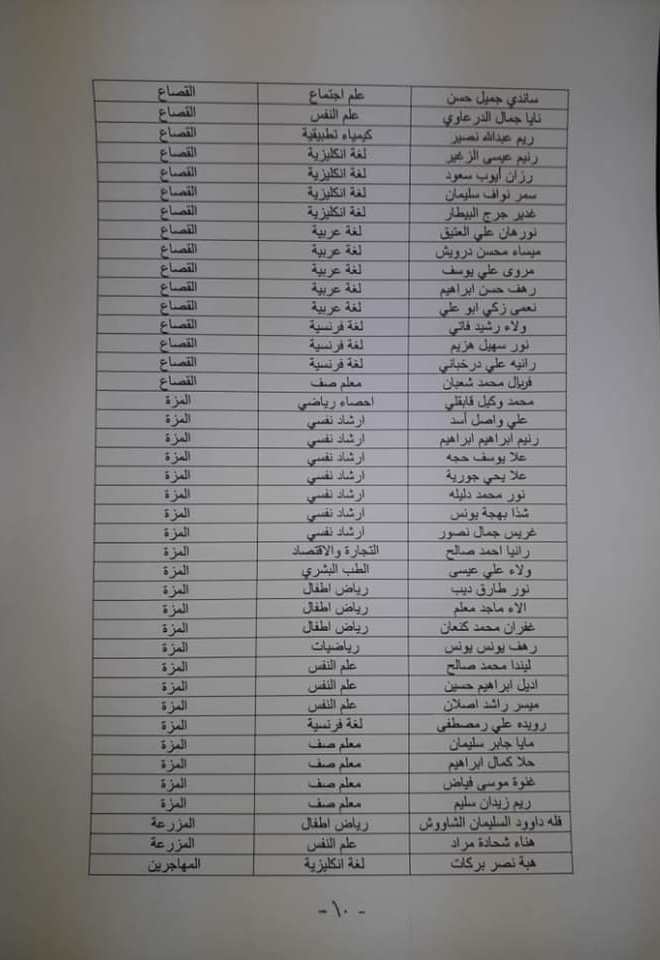 ساندي جميل حسن علم اجتماع القصاع
نايا جمال الدرعاوي علم النفس القصاع
ريم عبدالله نصير كيمياء تطبيقية القصاع
رنيم عيسى الزغير لغة انكليزية القصاع
رزان أيوب سعود لغة انكليزية القصاع
سمر نواف سليمان لغة انكليزية القصاع
غدير جرج البيطار لغة انكليزية القصاع
نورهان علي العتيق لغة عربية القصاع
ميساء محسن درويش لغة عربية القصاع
مروى علي يوسف لغة عربية القصاع
رهف حسن ابراهيم لغة عربية القصاع
نعمى زكي ابو علي لغة عربية القصاع
ولاء رشيد فاتي لغة فرنسية القصاع
نور سهيل هزيم لغة فرنسية القصاع
رانيه علي درخباني لغة فرنسية القصاع
فريال محمد شعبان معلم صف القصاع
محمد وكيل قابقلي احصاء رياضي المزة
علي واصل أسد ارشاد نفسي المزة
رنيم ابراهيم ابراهيم ارشاد نفسي المزة
علا يوسف حجه ارشاد نفسي المزة
علا يحي جورية ارشاد نفسي المزة
نور محمد دليله ارشاد نفسي المزة
شذا بهجة يونس ارشاد نفسي المزة
غريس جمال نصور ارشاد نفسي المزة
رانيا احمد صالح التجارة والاقتصاد المزة
ولاء علي عيسى الطب البشري المزة
نور طارق ديب رياض اطفال المزة
الاء ماجد معلم رياض اطفال المزة
غفران محمد كنعان رياض اطفال المزة
رهف يونس يونس رياضيات المزة
ليندا محمد صالح علم النفس المزة
اديل ابراهيم حسين علم النفس المزة
ميسر راشد اصلان علم النفس المزة
رويده علي رمصطفى لغة فرنسية المزة
مايا جابر سليمان معلم صف المزة
حلا كمال ابراهيم معلم صف المزة
غنوة موسى فياض معلم صف المزة
ريم زيدان سليم معلم صف المزة
فله داوود السليمان الشاووش رياض اطفال المزرعة
هناء شحادة مراد علم النفس المزرعة
هبة نصر بركات لغة انكليزية المهاجرين
- ١٠ -